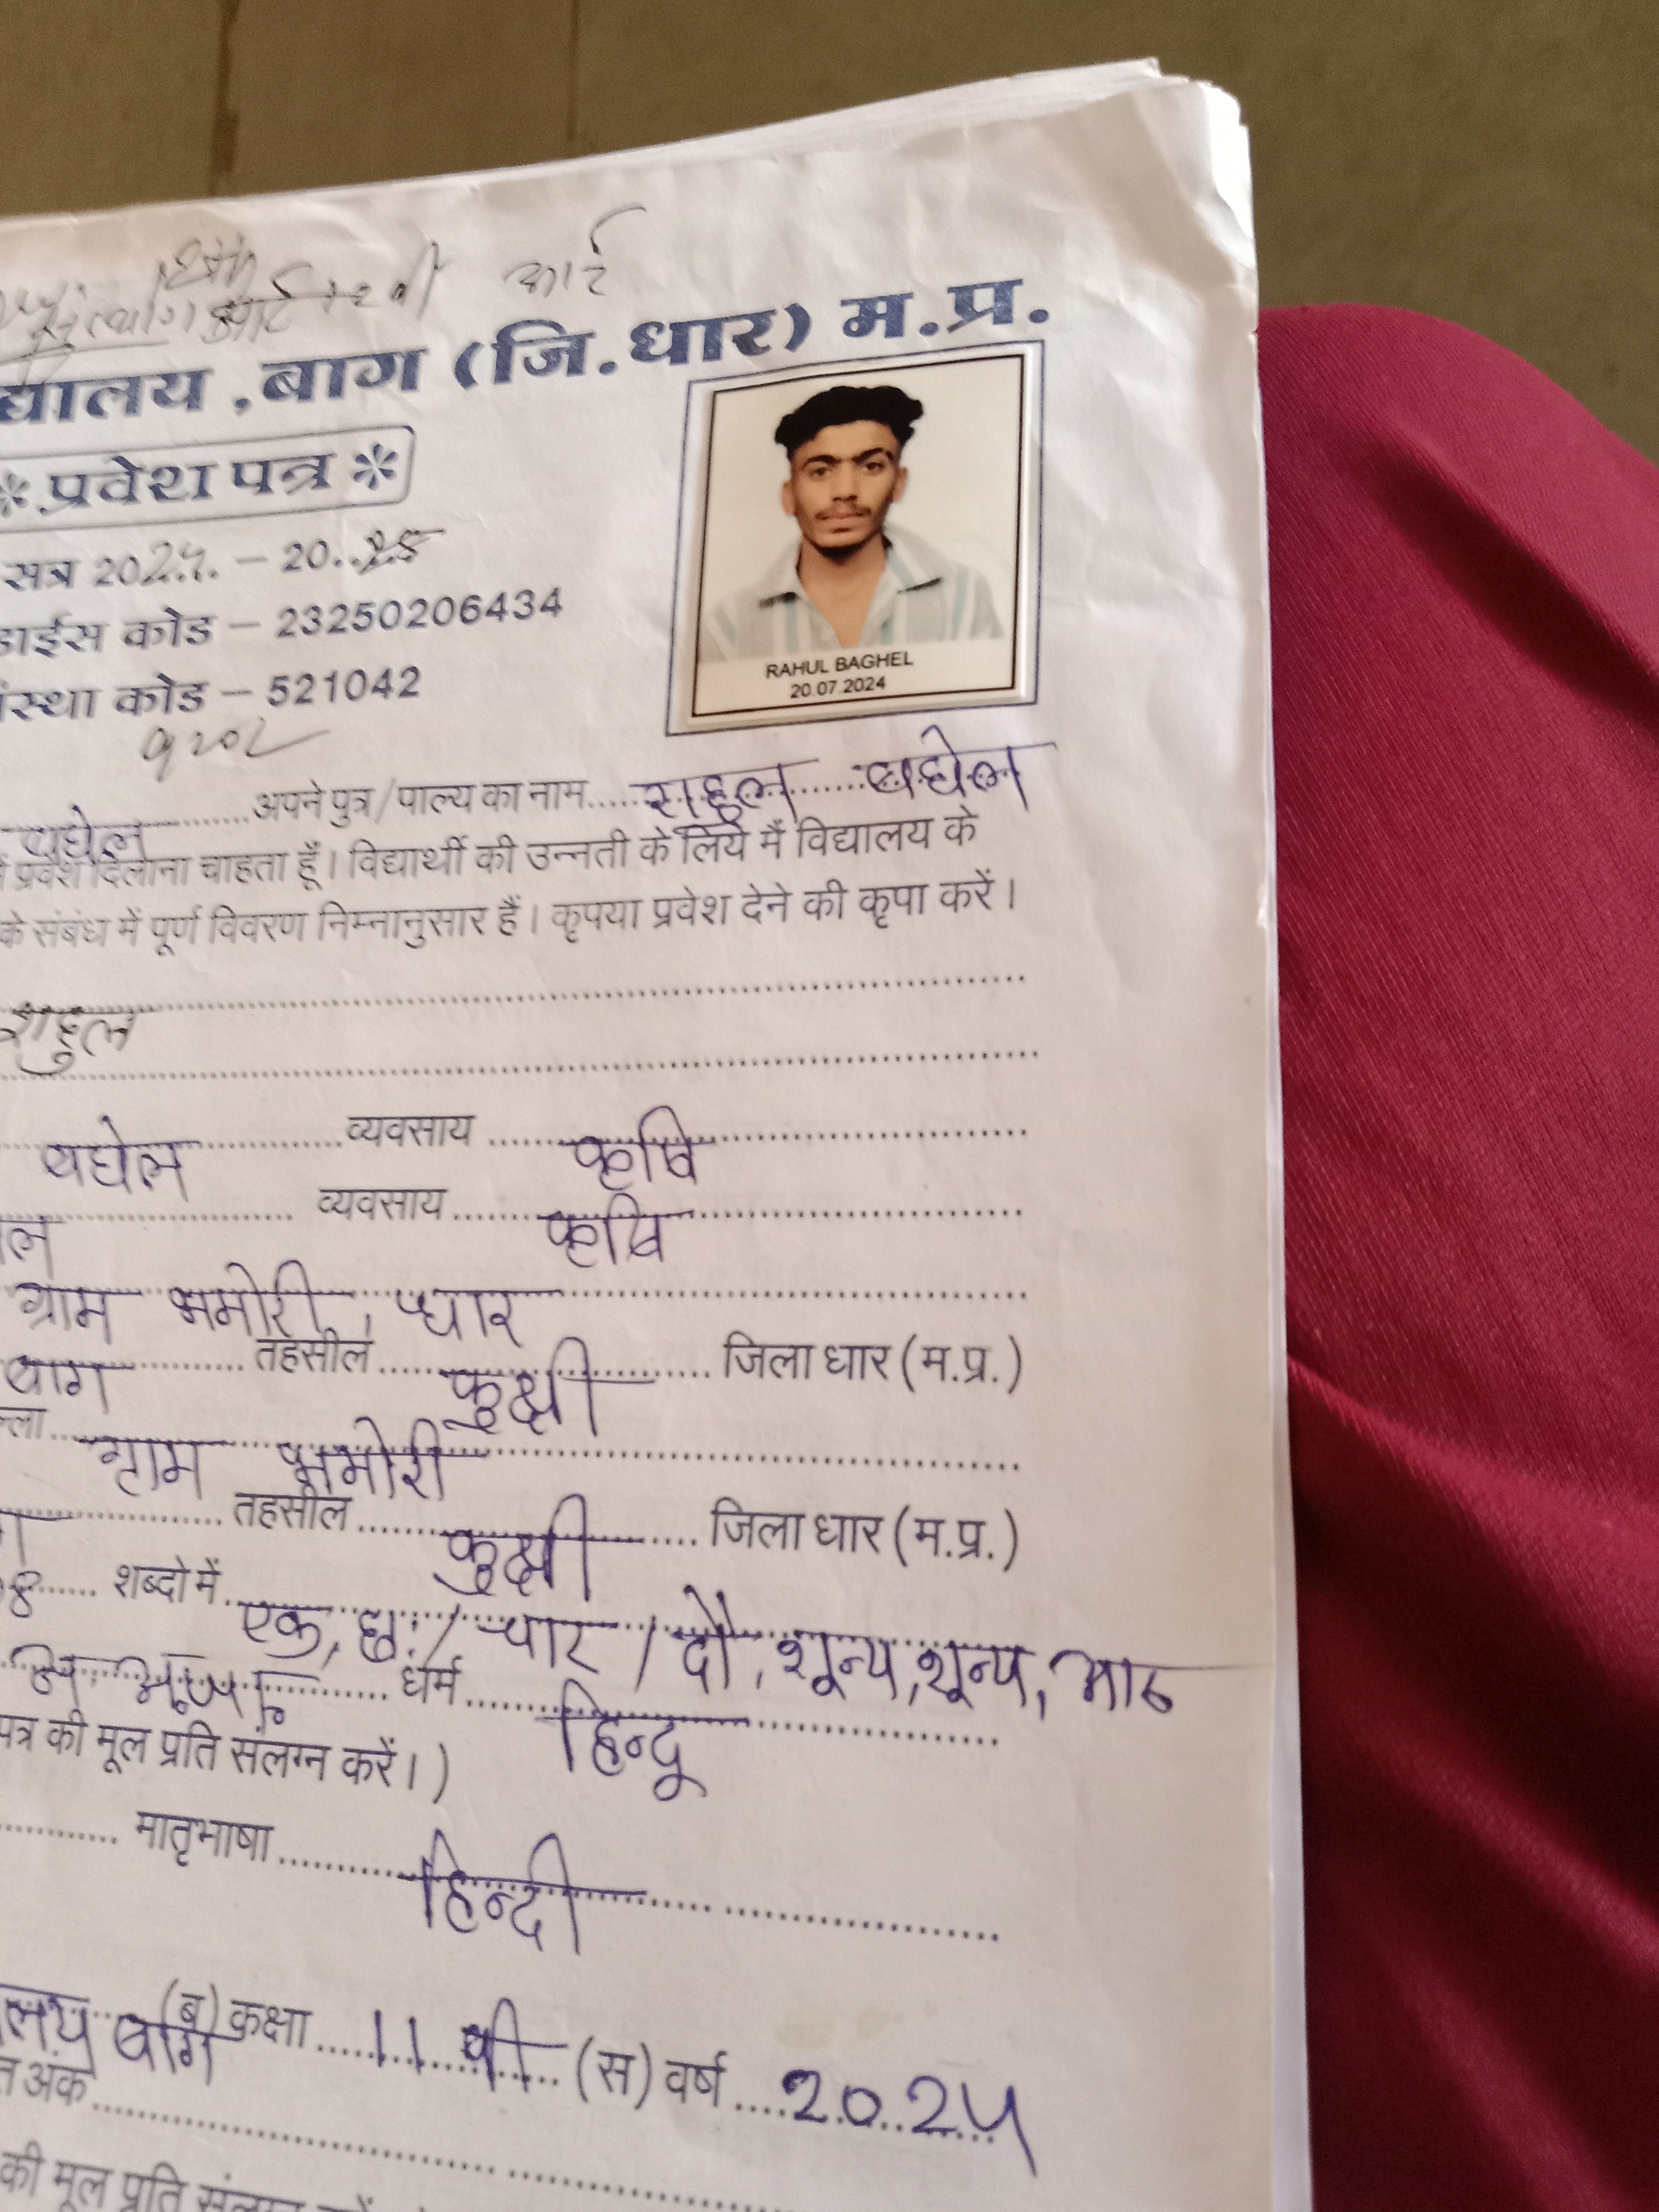 कार्ड
द्यालय, बाग (जि.धार) म.प्र.
* प्रवेश पत्र *
सत्र 2024. - 20..25
डाईस कोड - 23250206434
संस्था कोड - 521042
RAHUL BAGHEL
20.07.2024
बघेल ........अपने पुत्र/पाल्य का नाम..... राहुल ...... बघेल
में प्रवेश दिलाना चाहता हूँ। विद्यार्थी की उन्नती के लिये मैं विद्यालय के
के संबंध में पूर्ण विवरण निम्नानुसार हैं। कृपया प्रवेश देने की कृपा करें।
राहुल
बघेल ............व्यवसाय ...... कृषि
............ व्यवसाय ...... कृषि
ग्राम भमोरी, धार
बाग ............ तहसील .... कुक्षी ...... जिला धार (म.प्र.)
ग्राम भमोरी
............ तहसील .... कुक्षी .... जिला धार (म.प्र.)
08 ...... शब्दो में .... एक, छः / चार / दो, शून्य, शून्य, आठ
............ धर्म .... हिन्दू
पत्र की मूल प्रति संलग्न करें।)
............ मातृभाषा ........ हिन्दी
लय बाग (ब) कक्षा .... 11 वी .... (स) वर्ष .... 2024
अंक
की मूल प्रति